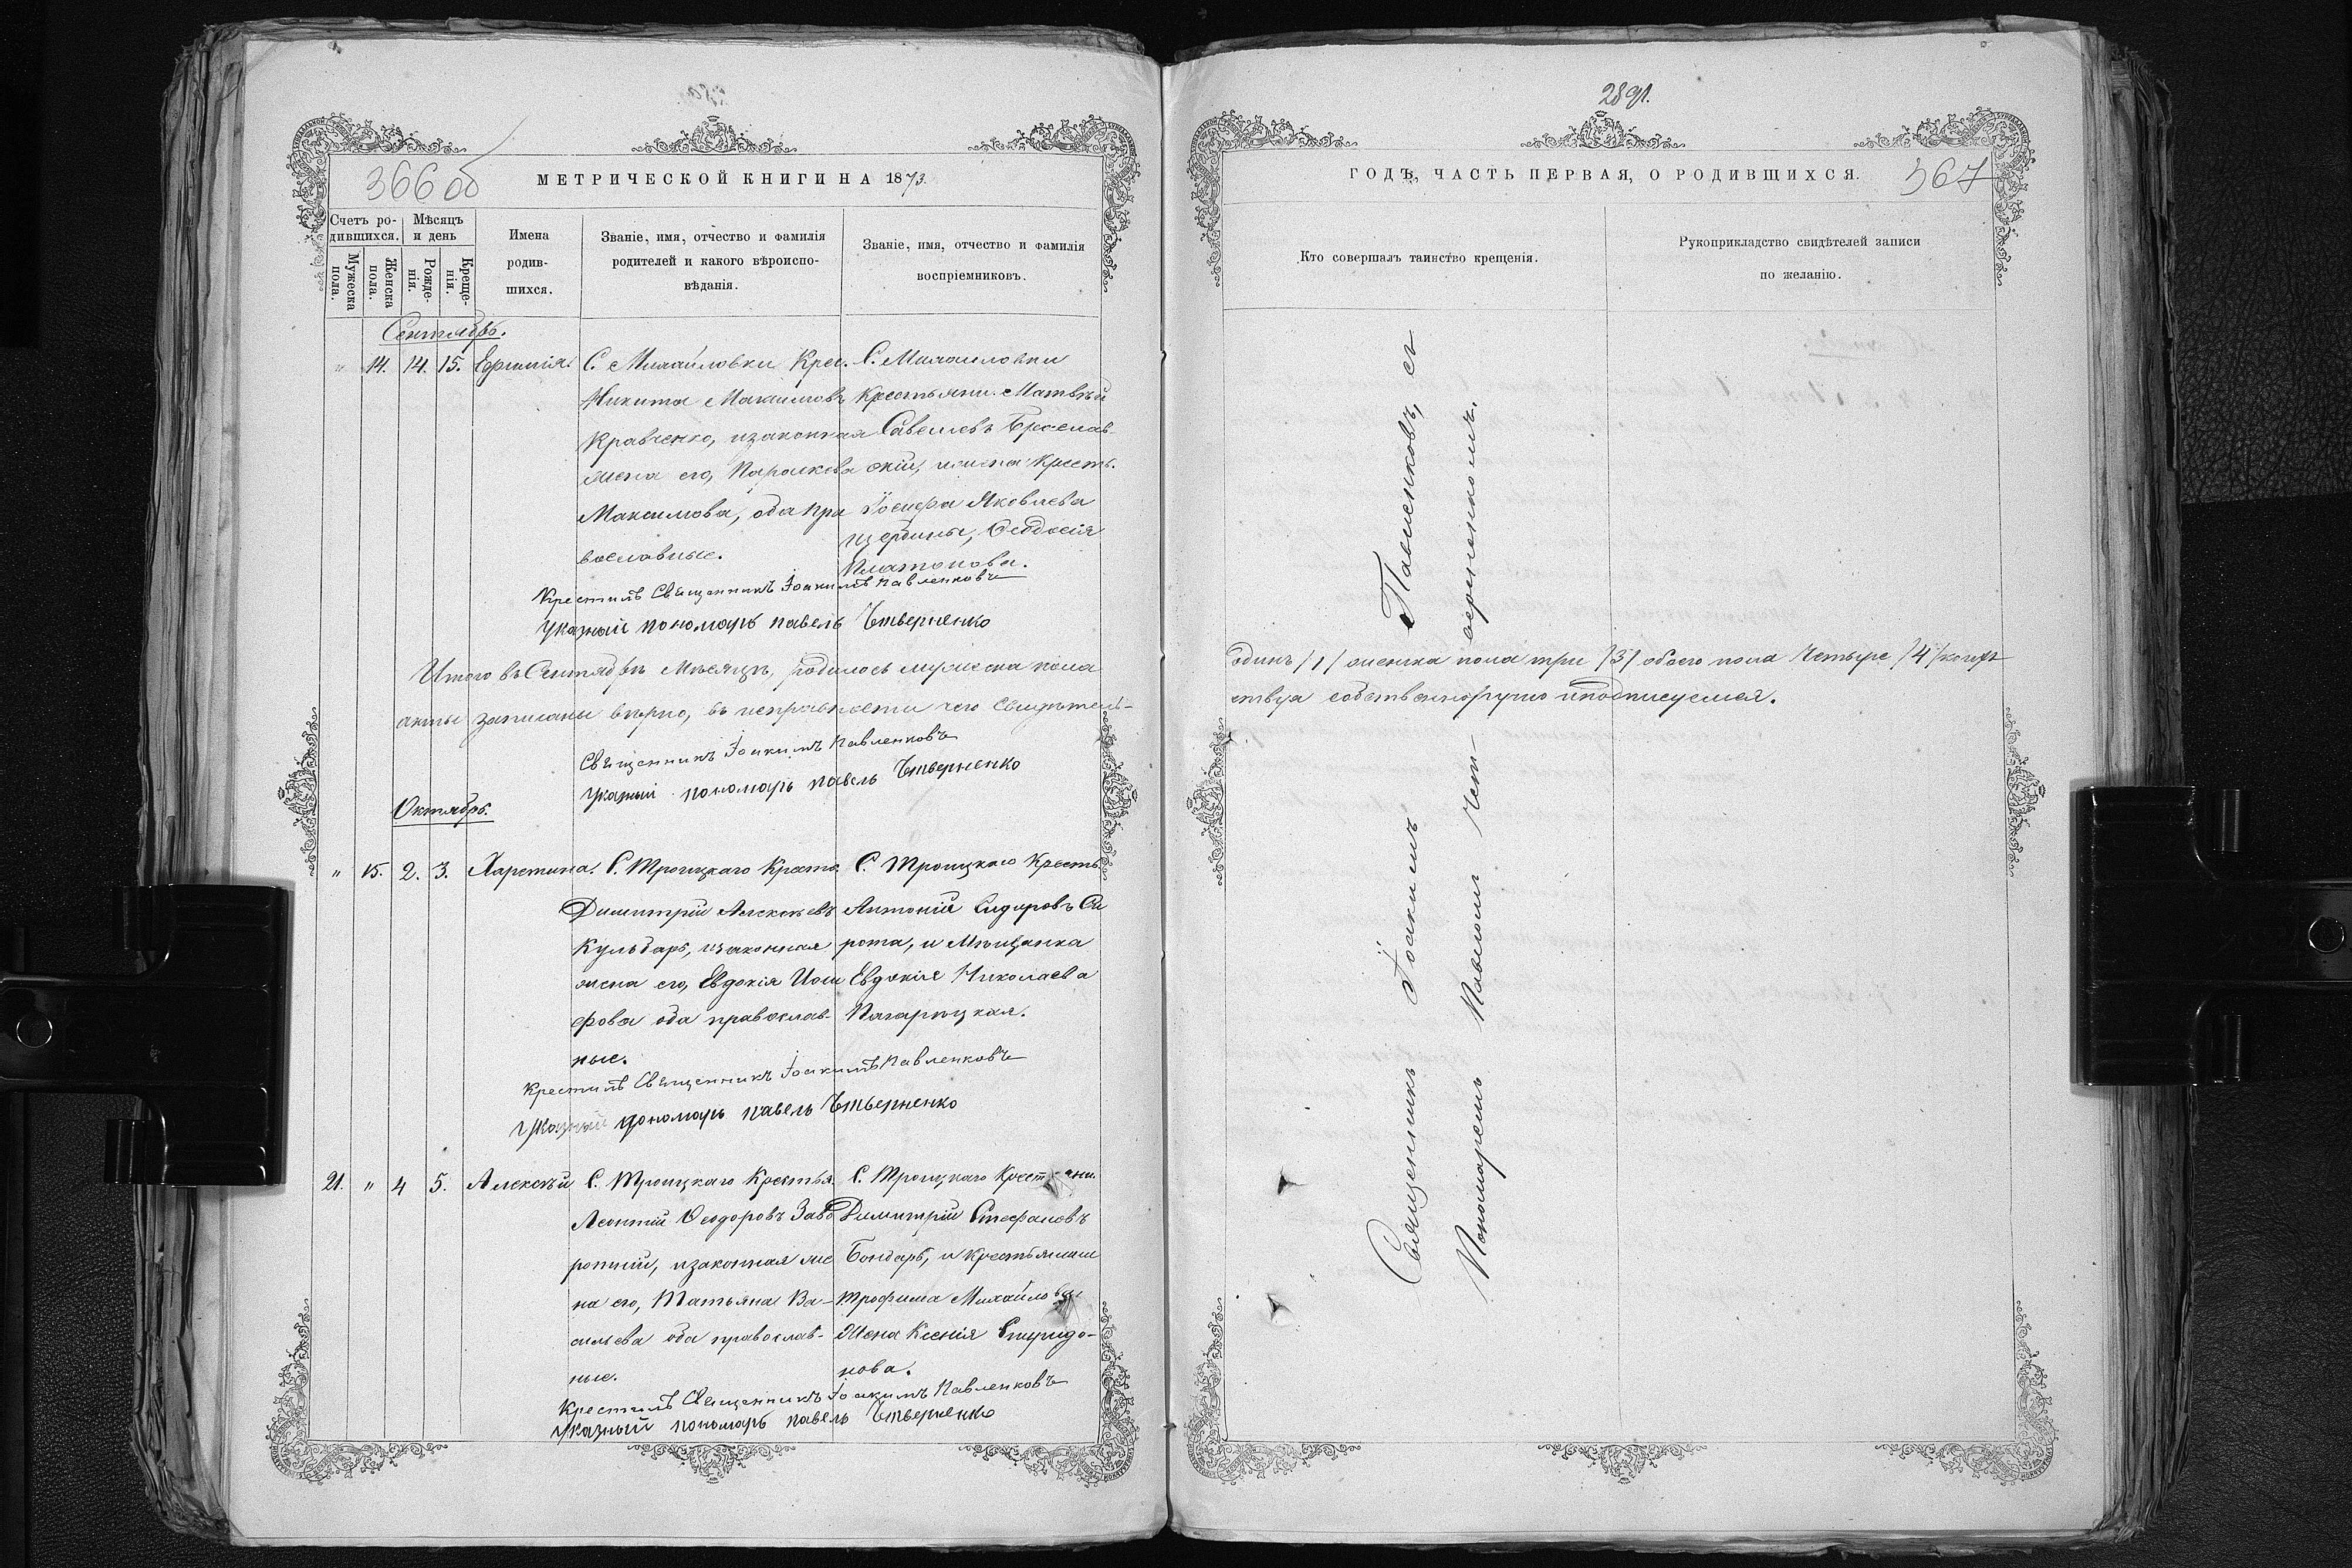 366 об
МЕТРИЧЕСКОЙ КНИГИ НА 1873.
Счетъ ро-
дившихся.
Мужеска
пола.
Женска
пола.
Мѣсяцъ
и день
Рожде-
нія.
Креще-
нія.
Имена
родив-
шихся.
Званіе, имя, отчество и фамилія
родителей и какого вѣроиспо-
вѣданія.
Званіе, имя, отчество и фамилія
воспріемниковъ.
Сентябрь.
" 14. 14. 15. Ефимія.
С. Михайловки Крес.
Никита Максимовъ
Кравченко, изаконная
жена его, Параскева
Максимова, оба пра
вославные.
С. Михаиловки
Крестьяни. Матвѣй
Савельевъ Бреслав-
скій, и жена Кресть.
Іосифа Яковлева
Щербины, Феодосія
Платонова.
Крестилъ Священникъ Іоакимъ Павленковъ
Указный пономарь Павелъ Четверненко
Итого въ Сентябрѣ Мѣсяцѣ, родилось мужеска пола
акты записаны вѣрно, въ исправности чего Свидѣтель-
Священникъ Іоакимъ Павленковъ
Указный пономарь Павелъ Четверненко
Октябрь.
" 15. 2. 3. Харитина.
С. Троицкаго Кресть.
Димитрій Алексѣевъ
Кульбаръ, изаконная
жена его, Евдокія Иоси
фова оба православ-
ные.
С. Троицкаго Кресть.
Антоній Сидоровъ Си
рота, и Мѣщанка
Евдокія Николаева
Пагарѣцкая.
Крестилъ Священникъ Іоакимъ Павленковъ
Указный пономарь Павелъ Четверненко
21. " 4 5. Алексѣй
С. Троицкаго Крестья.
Леонтій Феодоровъ Заво
ротній, изаконная же
на его, Татьяна Ва-
сильева оба православ-
ные.
С. Троицкаго Крестьяни.
Димитрій Стефановъ
Бондарь, и Крестьянина
Трофима Михайлова
Жена Ксенія Спиридо-
нова.
Крестилъ Священникъ Іоакимъ Павленковъ
Указный пономарь Павелъ Четверненко
289.
ГОДЪ, ЧАСТЬ ПЕРВАЯ, О РОДИВШИХСЯ.
367
Кто совершалъ таинство крещенія.
Рукоприкладство свидѣтелей записи
по желанію.
одинъ /1/ женска пола три /3/ обоего пола Четыре /4/
ствуя собственноручно иподписуемся.
Священникъ Іоакимъ Павленковъ, съ
Пономаремъ Павломъ Чет-верненкомъ.